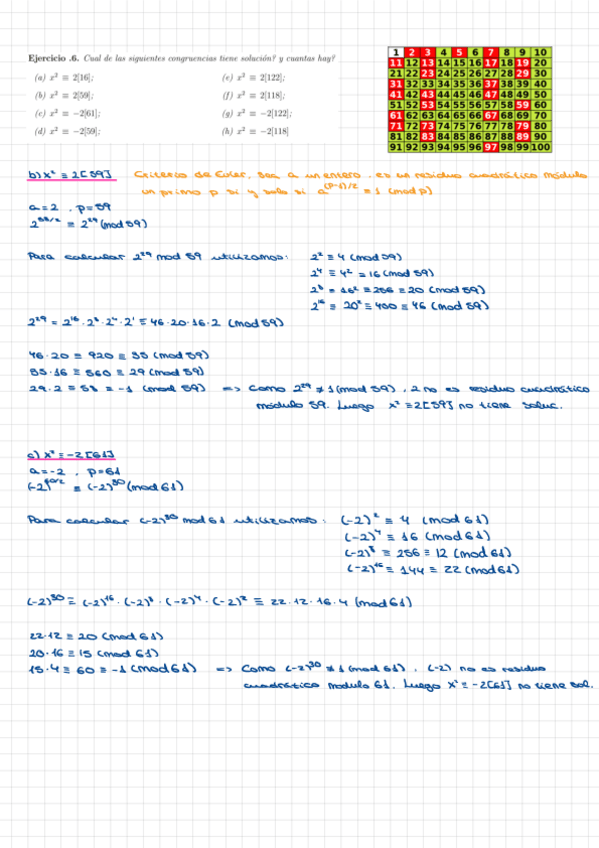 Ejercicio .6. Cual de las siguientes congruencias tiene solución? y cuantas hay?
(a) x² ≡ 2[16]; (e) x² ≡ 2[122];
(b) x² ≡ 2[59]; (f) x² ≡ 2[118];
(c) x² ≡ −2[61]; (g) x² ≡ −2[122];
(d) x² ≡ −2[59]; (h) x² ≡ −2[118]
1 2 3 4 5 6 7 8 9 10
11 12 13 14 15 16 17 18 19 20
21 22 23 24 25 26 27 28 29 30
31 32 33 34 35 36 37 38 39 40
41 42 43 44 45 46 47 48 49 50
51 52 53 54 55 56 57 58 59 60
61 62 63 64 65 66 67 68 69 70
71 72 73 74 75 76 77 78 79 80
81 82 83 84 85 86 87 88 89 90
91 92 93 94 95 96 97 98 99 100
b) x² ≡ 2[59] Criterio de Euler. Sea a un entero. es un residuo cuadrático módulo
un primo p si y solo si a^(p-1)/2 ≡ 1 (mod p)
a = 2 , p = 59
2^58/2 ≡ 2²⁹ (mod 59)
Para calcular 2²⁹ mod 59 utilizamos: 2² ≡ 4 (mod 59)
2⁴ ≡ 4² = 16 (mod 59)
2⁸ ≡ 16² ≡ 256 ≡ 20 (mod 59)
2¹⁶ ≡ 20² ≡ 400 ≡ 46 (mod 59)
2²⁹ = 2¹⁶ · 2⁸ · 2⁴ · 2¹ ≡ 46 · 20 · 16 · 2 (mod 59)
46 · 20 ≡ 920 ≡ 35 (mod 59)
35 · 16 ≡ 560 ≡ 29 (mod 59)
29 · 2 ≡ 58 ≡ -1 (mod 59) => Como 2²⁹ ≢ 1 (mod 59) , 2 no es residuo cuadrático
módulo 59. Luego x² ≡ 2[59] no tiene soluc.
c) x² ≡ -2[61]
a = -2 , p = 61
(-2)^60/2 ≡ (-2)³⁰ (mod 61)
Para calcular (-2)³⁰ mod 61 utilizamos: (-2)² ≡ 4 (mod 61)
(-2)⁴ ≡ 16 (mod 61)
(-2)⁸ ≡ 256 ≡ 12 (mod 61)
(-2)¹⁶ ≡ 144 ≡ 22 (mod 61)
(-2)³⁰ ≡ (-2)¹⁶ · (-2)⁸ · (-2)⁴ · (-2)² ≡ 22 · 12 · 16 · 4 (mod 61)
22 · 12 ≡ 20 (mod 61)
20 · 16 ≡ 15 (mod 61)
15 · 4 ≡ 60 ≡ -1 (mod 61) => Como (-2)³⁰ ≢ 1 (mod 61) , (-2) no es residuo
cuadrático modulo 61. Luego x² ≡ -2[61] no tiene sol.